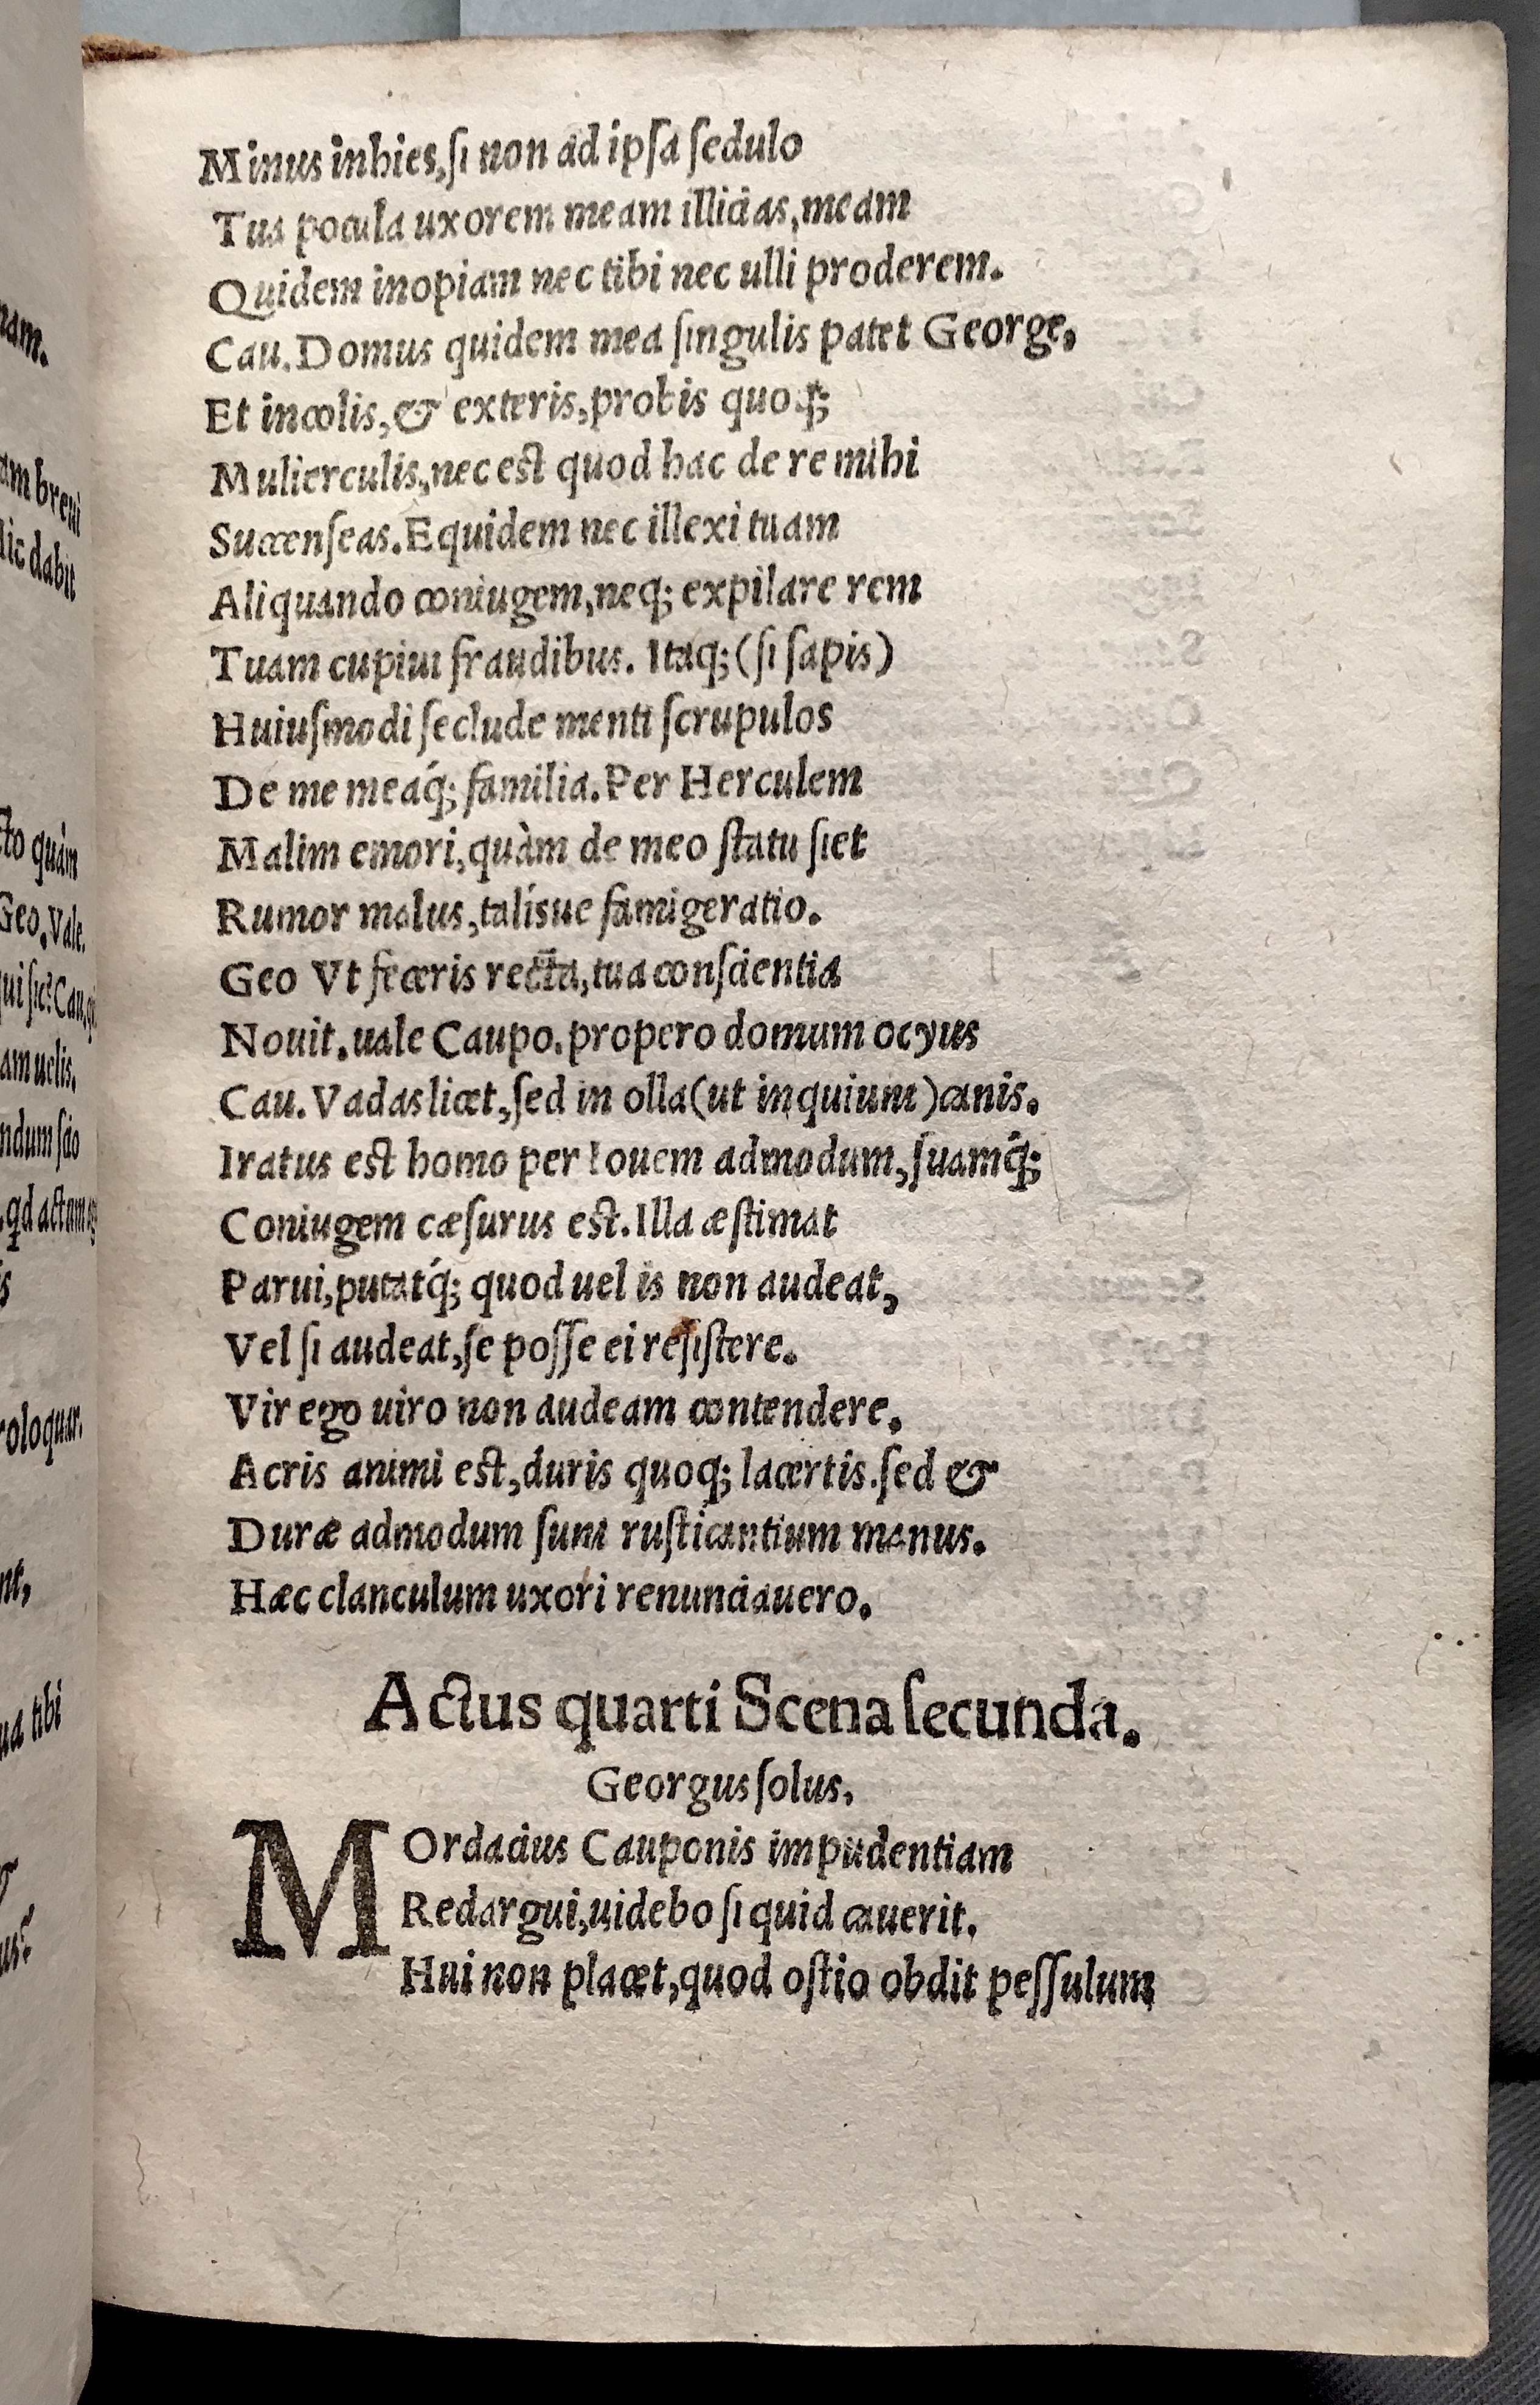 Minus inhies, ſi non ad ipſa ſedulo
Tua pocula uxorem meam illicias, meam
Quidem inopiam nec tibi nec ulli proderem.
Cau. Domus quidem mea ſingulis patet George,
Et incolis, & exteris, probis quoq́;
Mulierculis, nec est quod hac de re mihi
Succenſeas. Equidem nec illexi tuam
Aliquando coniugem, neq; expilare rem
Tuam cupiui fraudibus. Itaq; (ſi ſapis)
Huiuſmodi ſeclude menti ſcrupulos
De me meaq́; familia. Per Herculem
Malim emori, quàm de meo ſtatu ſiet
Rumor malus, talísue famigeratio.
Geo Vt feceris recta, tua conſcientia
Nouit. uale Caupo. propero domum ocyus
Cau. Vadas licet, ſed in olla (ut inquiunt) canis.
Iratus est homo per Iouem admodum, ſuamq́;
Coniugem cæſurus est. Illa æſtimat
Parui, putatq́; quod uel is non audeat,
Vel ſi audeat, ſe poſſe ei reſiſtere.
Vir ego uiro non audeam contendere,
Acris animi est, duris quoq; lacertis. ſed &
Duræ admodum ſunt ruſticantium manus.
Hæc clanculum uxori renunciauero.
Actus quarti Scena ſecunda.
Georgus ſolus.
MOrdacius Cauponis impudentiam
Redargui, uidebo ſi quid cauerit.
Hui non placet, quod oſtio obdit peſſulum
nam.
am breui
lic dabit
cto quàm
Geo. Vale.
qui ſic? Cau.
am uelis.
ndum ſcio
qd actum
is
roloquar.
nt,
ua tibi